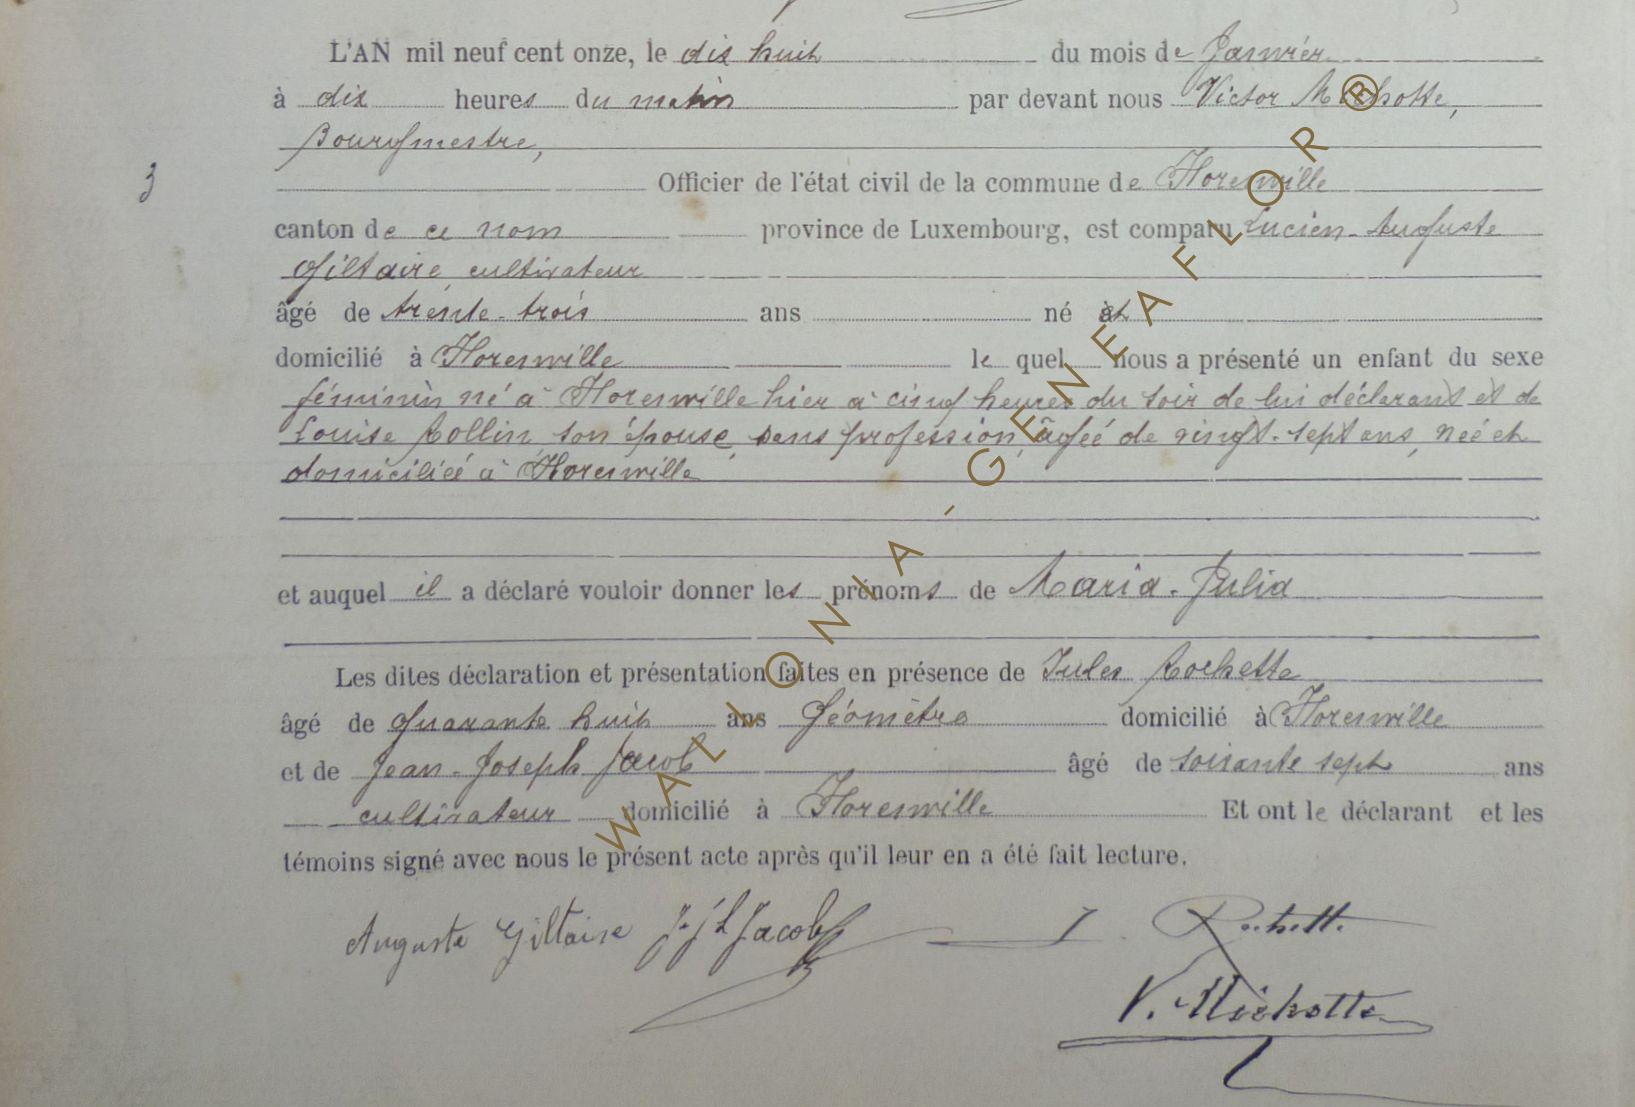 L'AN mil neuf cent onze, le dix huit du mois de Janvier
à dix heures du matin par devant nous Victor Michotte,
Bourgmestre,
3
Officier de l'état civil de la commune de Florenville
canton de ce nom province de Luxembourg, est comparu Lucien-Auguste
Giltaire, cultivateur
âgé de trente-trois ans né et
domicilié à Florenville le quel nous a présenté un enfant du sexe
féminin né à Florenville hier à cinq heures du soir de lui déclarant et de
Louise Collin son épouse, sans profession, âgée de vingt-sept ans, née et
domiciliée à Florenville
et auquel il a déclaré vouloir donner les prénoms de Maria-Julia
Les dites déclaration et présentation faites en présence de Jules Rochette
âgé de quarante huit ans Géomètre domicilié à Florenville
et de Jean-Joseph Jacob âgé de soixante sept ans
cultivateur domicilié à Florenville Et ont le déclarant et les
témoins signé avec nous le présent acte après qu'il leur en a été fait lecture.
Auguste Giltaire J. Jh Jacob J. Rochette
V. Michotte
WALLONIA - GENEAFLOR ®